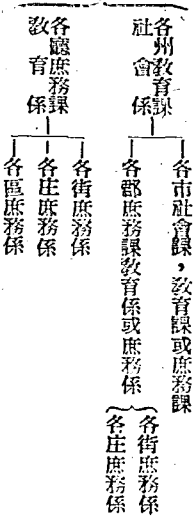 各州教育課
社會係
各市社會課，教育課或庶務課
各郡庶務課教育係或庶務係
各街庶務係
各庄庶務係
各廳庶務課
教育係
各街庶務係
各庄庶務係
各區庶務係